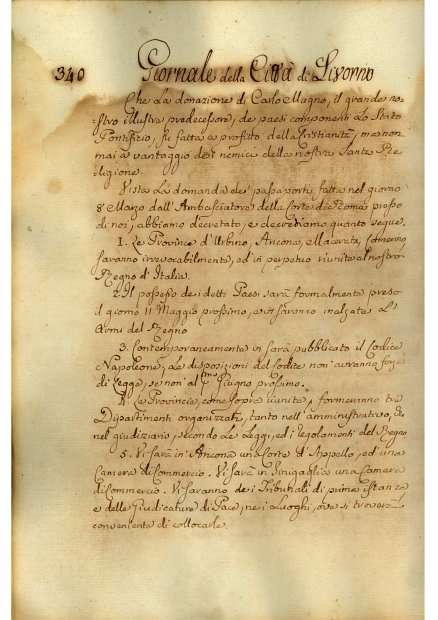 340 Giornale della Città di Livorno
Che la donazione di Carlo Magno, il grande no-
stro illustre predecessore, de paesi componenti lo Stato
Pontifizio, fu fatta a profitto della Cristianità, ma non
mai a vantaggio dei nemici della nostra Santa Re-
ligione.
Vista la domanda dei passaporti fatta nel giorno
8 Marzo dall'Ambasciatore della Corte di Roma presso
di noi, abbiamo decretato, e decretiamo quanto segue.
1. Le Province d'Urbino, Ancona, e Macerata, Camerino
saranno irrevocabilmente, ed in perpetuo riunite al nostro
Regno d'Italia.
2. Il possesso dei detti Paesi sarà formalmente preso
il giorno 11 Maggio prossimo, e vi saranno inalzate l'
Armi del Regno
3. Contemporaneamente vi sarà pubblicato il Codice
Napoleone; le disposizioni del Codice non avranno forza
di legge, se non al p.mo Giugno prossimo.
4. Le Provincie, come sopra riunite, formeranno tre
Dipartimenti organizzati, tanto nell'amministrativo, che
nel giudiziario, secondo le Leggi, ed i regolamenti del Regno
5. Vi sarà in Ancona una Corte d'Appello, ed una
Camera di Commercio. Vi sarà in Sinigaglia una Camera
di Commercio. Vi saranno dei Tribunali di prima istanza
e delle Giudicature di Pace, nei Luoghi, ove si troverà
conveniente di collocarle.